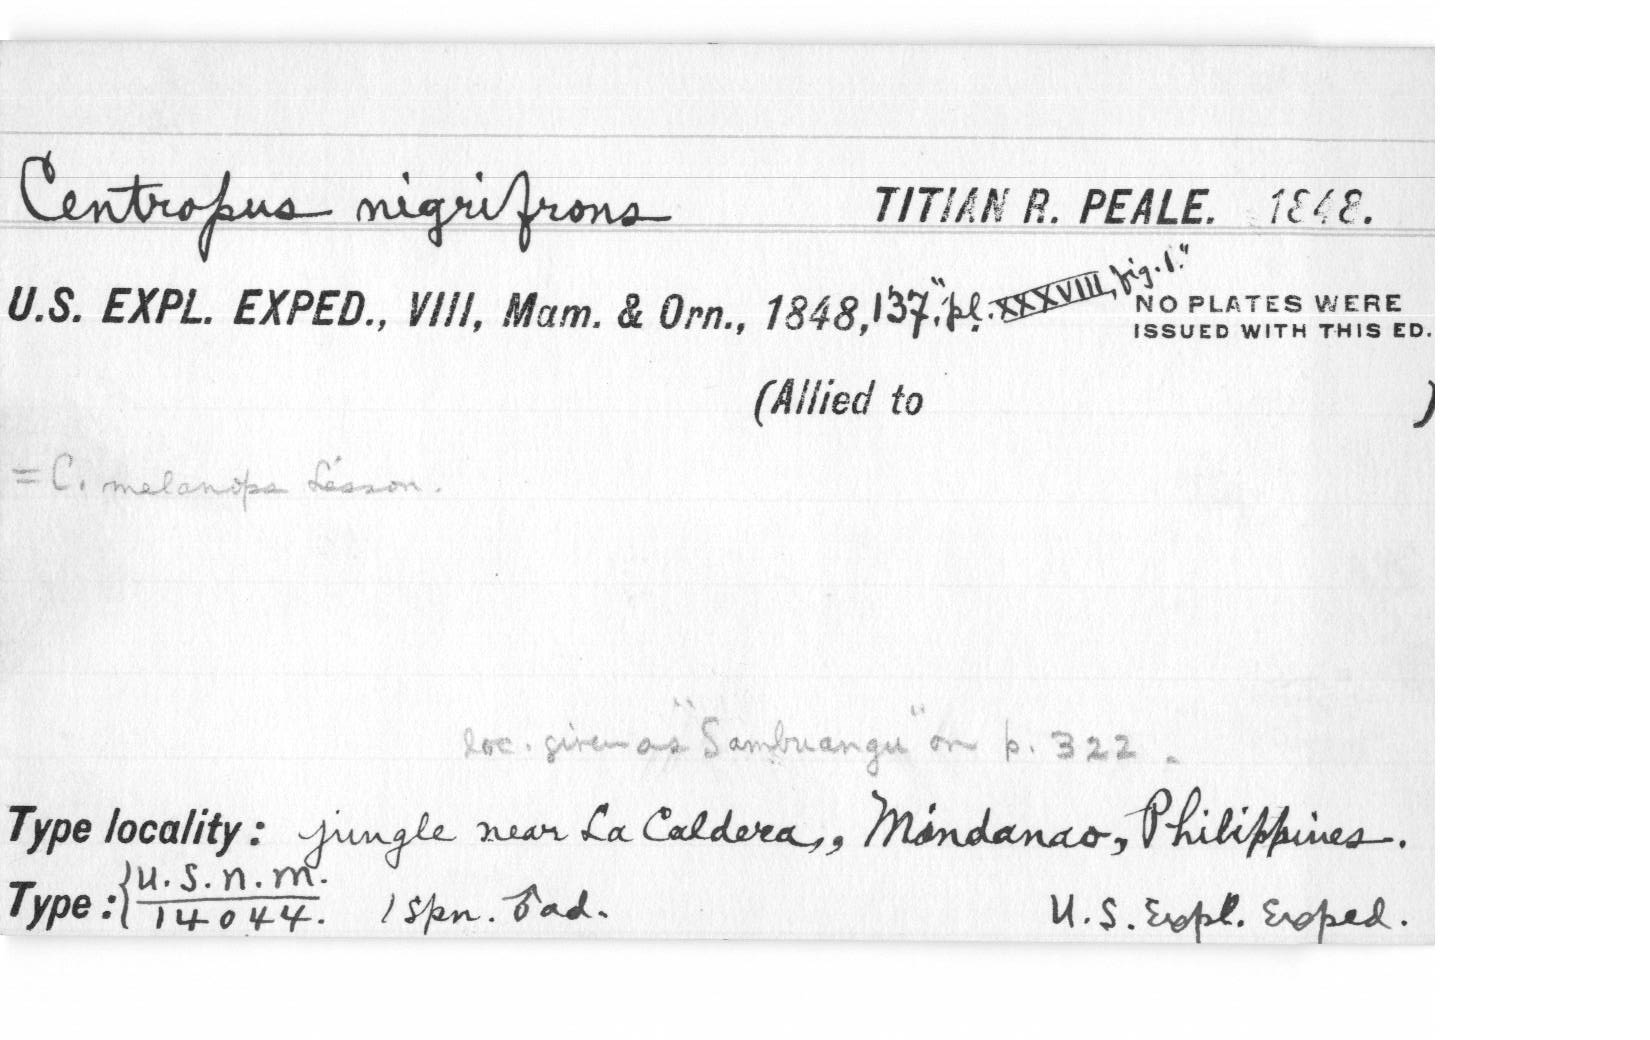 Centropus nigrifrons TITIAN R. PEALE. 1848.
U.S. EXPL. EXPED., VIII, Mam. & Orn., 1848, 137, "pl. XXXVIII, fig. 1."
NO PLATES WERE
ISSUED WITH THIS ED.
(Allied to )
= C. melanops Lesson.
loc. given as "Sambuangu" on p. 322.
Type locality: jungle near La Caldera,, Mindanao, Philippines.
Type: { U.S.N.M.
14044. 1 spn. ♂ ad. U.S. Expl. Exped.